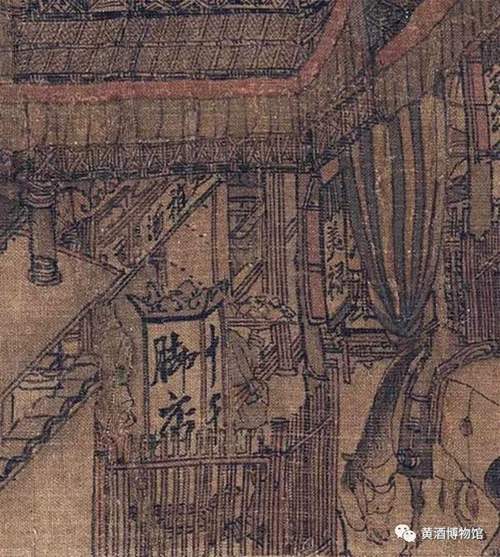 十千
脚店
美禄
黄酒博物馆